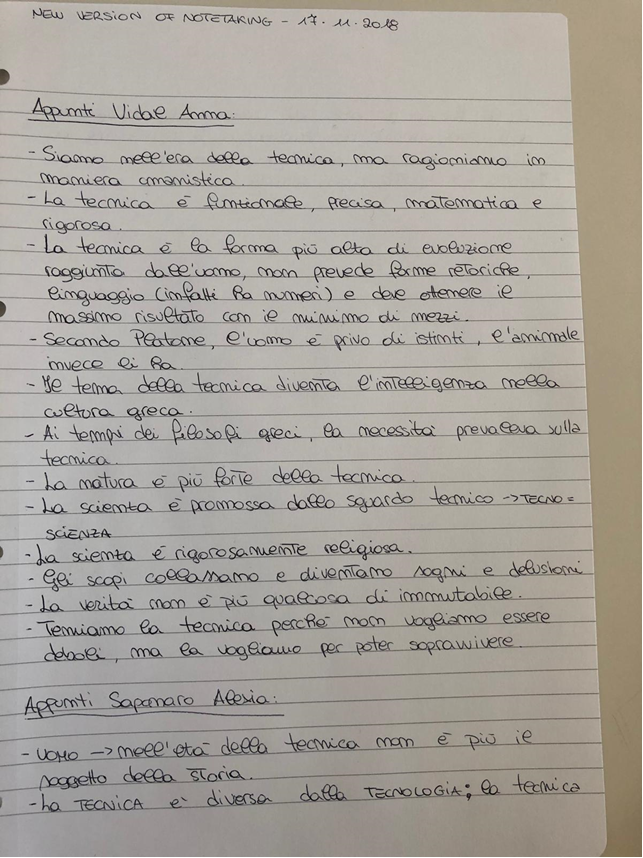 NEW VERSION OF NOTETAKING - 17.11.2018
Appunti Vidale Anna:
- Siamo nell'era della tecnica, ma ragioniamo in
maniera umanistica.
- La tecnica è funzionale, precisa, matematica e
rigorosa.
- La tecnica è la forma più alta di evoluzione
raggiunta dall'uomo, non prevede forme retoriche,
linguaggio (infatti ha numeri) e deve ottenere il
massimo risultato con il minimo di mezzi.
- Secondo Platone, l'uomo è privo di istinti, l'animale
invece li ha.
- Il tema della tecnica diventa l'intelligenza nella
cultura greca.
- Ai tempi dei filosofi greci, la necessità prevaleva sulla
tecnica.
- La natura è più forte della tecnica.
- La scienza è promossa dallo sguardo tecnico -> TECNO =
SCIENZA
- La scienza è rigorosamente religiosa.
- Gli scopi collassano e diventano sogni e delusioni
- La verità non è più qualcosa di immutabile.
- Temiamo la tecnica perché non vogliamo essere
deboli, ma la vogliamo per poter sopravvivere.
Appunti Saponaro Alexia:
- UOMO -> nell'età della tecnica non è più il
soggetto della storia.
- La TECNICA è diversa dalla TECNOLOGIA; la tecnica